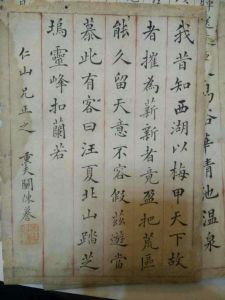 華清池溫泉
我昔知西湖以梅甲天下故
者摧為薪新者竟盈把荒區
能久留天意不容假茲遊當
慕此有客曰汪夏北山踏芝
塢靈峰扣蘭若
仁山兄正之